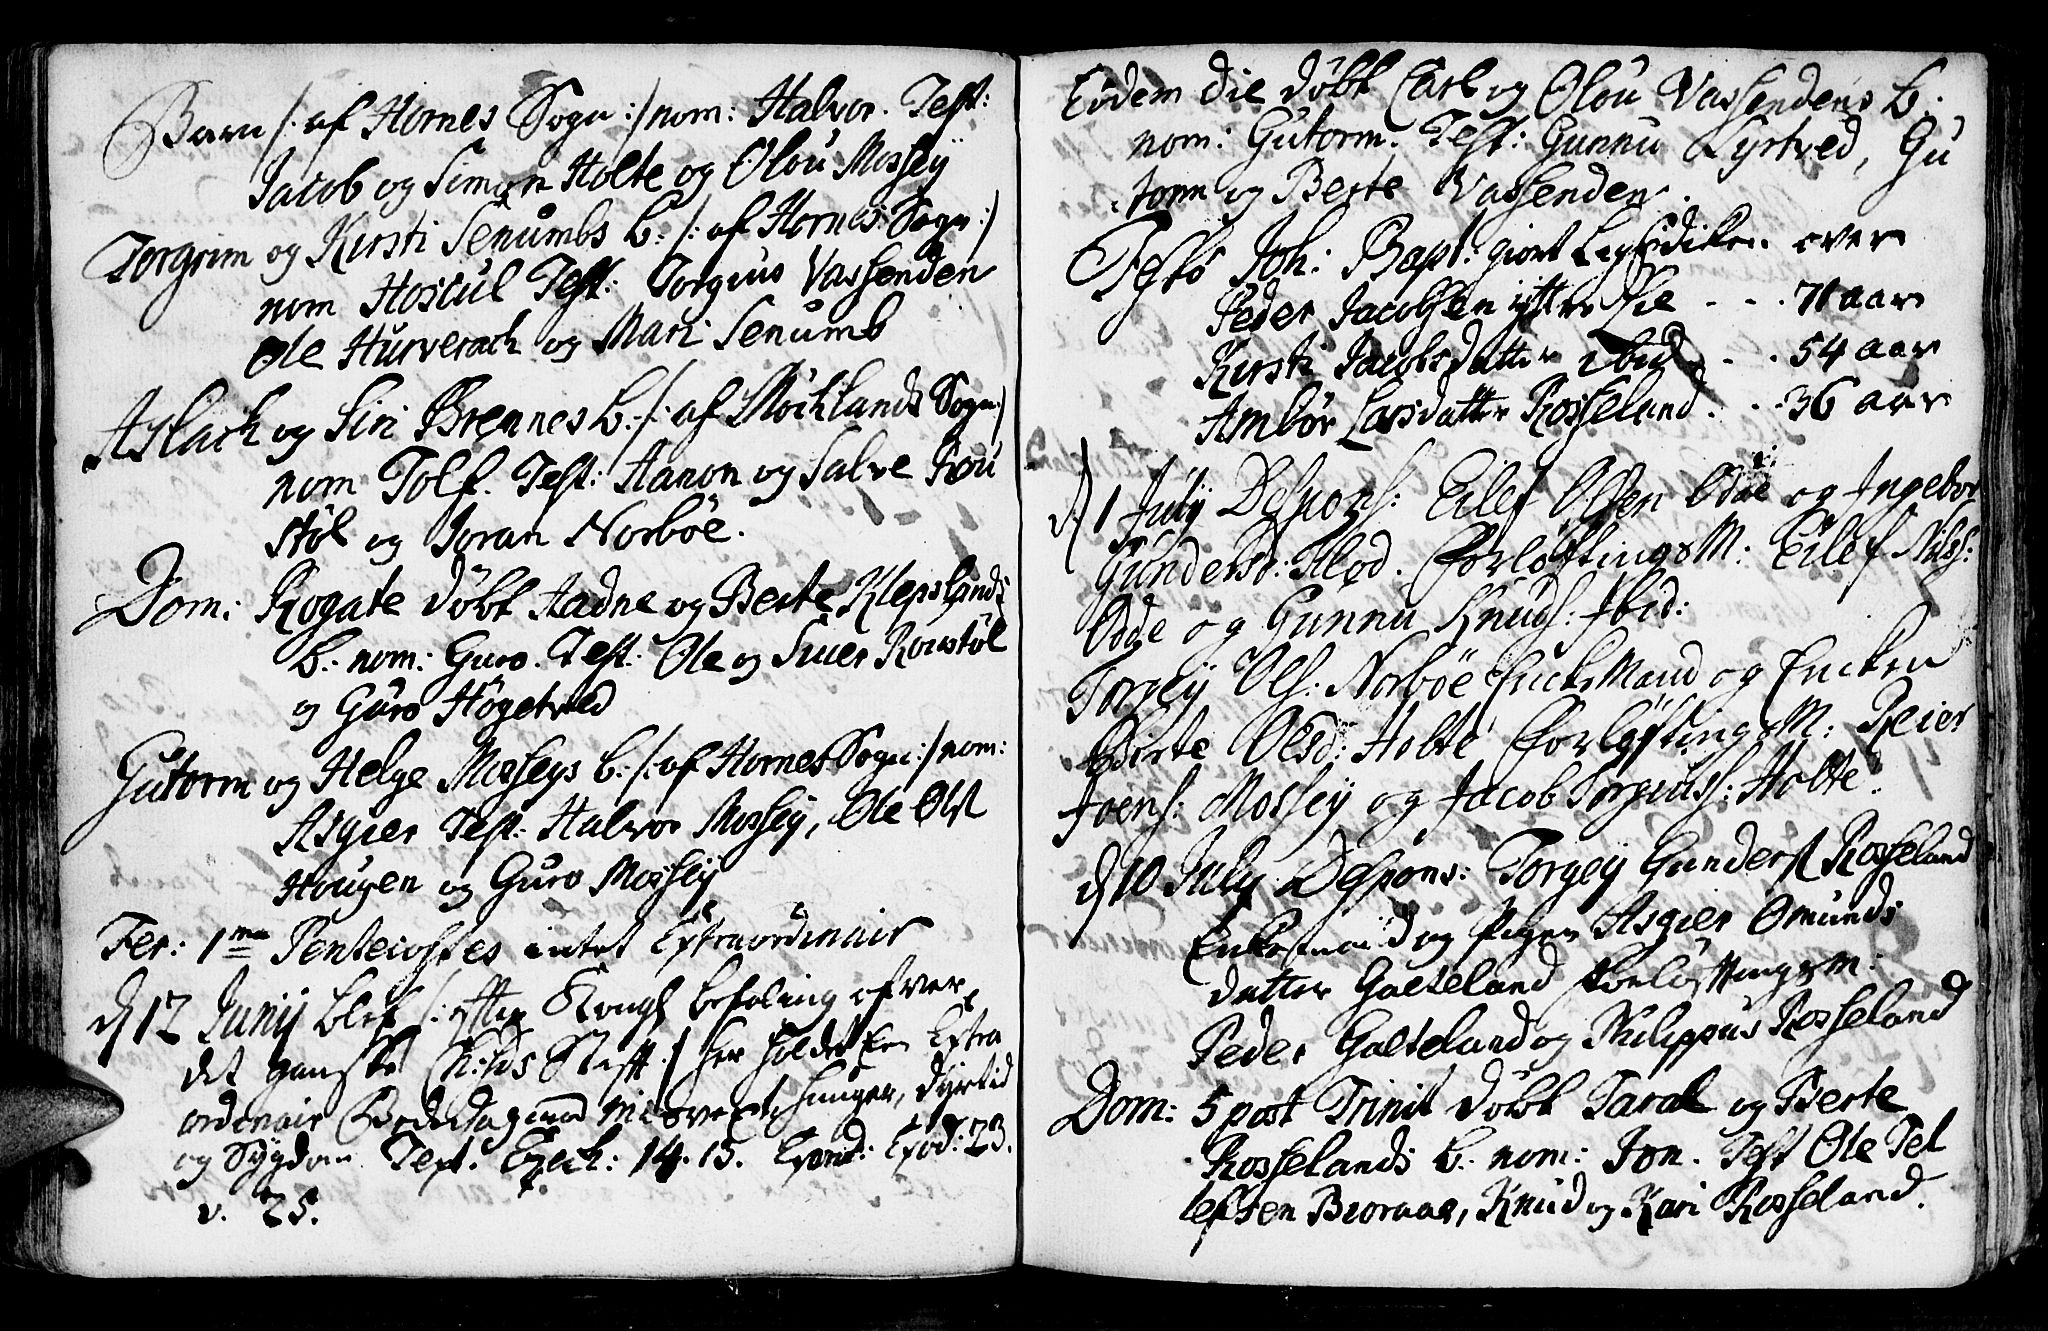 Barn /: af Hornes Sogn :/ nom: Halvor. Test:
Jacob og Simon Holte og Olou Mossey
Torgrim og Kirsti Senumbs b: /: af Hornes Sogn :/
nom Hoscul Test: Torgius Vassenden
Ole Hurverack og Mari Senumb
Aslach og Siri Brennes b: /: af Møcklands Sogn :/
nom Tolf. Test: Hanon og Salve Rou
støl og Joran Norbøe.
Dom: Rogate døbt Aadne og Berte Klepslands
b: nom: Guro. Test: Ole og Siver Roustøl
og Guro Høgetved
Gutorm og Helge Mosseys b: /: af Hornes Sogn :/ nom:
Asgier Test: Halvor Mossey, Ole Ols
Hougen og Guro Mossey
Fer: 1ma Pentecostes intet Extraordinair
d 12 Junij blef /: efter Kongl befaling ofver
det ganske Stift :/ her holdet En Extra
ordinair Bededag mod Misvext, hunger, dyrtid
og Sygdom Text. Ezech: 14. 13. Exod: 23.
v. 25.
Eodem die døbt Carl og Olou Vassendens b:
nom: Gutorm. Test: Gunnu Lyrtved, Gu
torm og Berte Vassenden.
Festo Joh: Bapt: giort Ligprædiken over
Peder Jacobsen yttre 71 aar
Kirsti Jacobsdatter ibid 54 aar
Ambør Larsdatter Rosseland 36 aar
d 1 July Despons: Eilef Olsen Odde og Ingebor
Gundersd: Flod. Forløftings M: Eilef Nilss:
Odde og Gunnu Knuds: Ibid:
Torgey Ols: Norbøe Encke Mand og Encken
Birte Olsd: Holte Forløftings M: Reier
Joens: Mossey og Jacob Torgius: Holte.
d 10 July Despons: Torgey Gunders Rosseland
Enkemand og Pigen Asgier Omunds
datter Galteland Forløftings M:
Peder Galteland og Philippus Rosseland
Dom: 5 post Trinit døbt Taral og Berte
Rosselands b: nom: Jon. Test Ole Tel
lefsen Bioraae, Knud og Kari Rosseland.